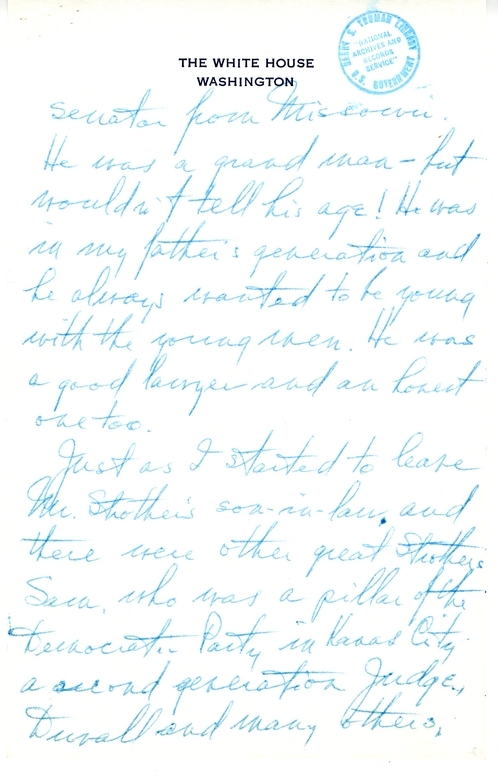 HARRY S. TRUMAN LIBRARY
"NATIONAL
ARCHIVES AND
RECORDS
SERVICE"
U.S. GOVERNMENT
THE WHITE HOUSE
WASHINGTON
senator from Missouri.
He was a grand man - but
wouldn't tell his age! He was
in my father's generation and
he always wanted to be young
with the young men. He was
a good lawyer and an honest
one too.
Just as I started to leave
Mr. Strother's son-in-law, and
there were other great Strothers
Sam, who was a pillar of the
Democratic Party in Kanas City
a second generation Judge,
Duvall and many others,